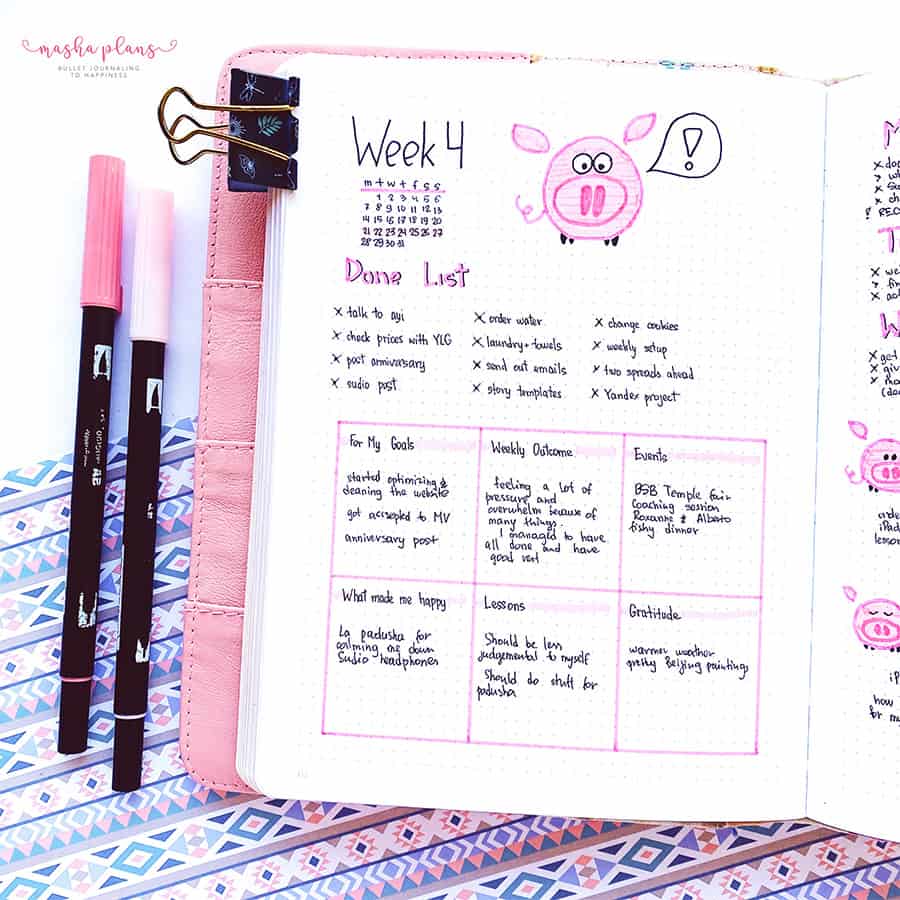 masha plans
BULLET JOURNALING
TO HAPPINESS
Week 4
!
m t w t f s s
1 2 3 4 5 6
7 8 9 10 11 12 13
14 15 16 17 18 19 20
21 22 23 24 25 26 27
28 29 30 31
Done List
x talk to ayi
x check prices with YLG
x post anniversary
x sudio post
x order water
x laundry + towels
x send out emails
x story templates
x change cookies
x weekly setup
x two spreads ahead
x Yandex project
For My Goals
started optimizing &
cleaning the website
got accsepted to MV
anniversary post
Weekly Outcome
feeling a lot of
pressure and
overwhelm because of
many things.
I managed to have
all done and have
good rest
Events
BSB Temple fair
Coaching session
Roxanne & Alberto
fishy dinner
What made me happy
La padusha for
calming me down
Sudio headphones
Lessons
Should be less
judgemental to myself
Should do stuff for
padusha
Gratitude
warmer weather
pretty Beijing paintings
M
x
x
x
x
! REC
T
x
x
x
W
x get
x
x
iPad
lesson
how
for my